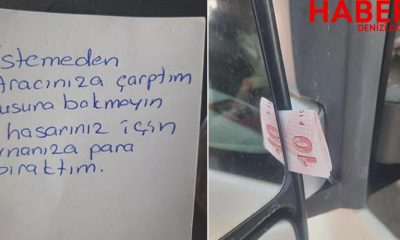 istemeden
aracınıza çarptım
usura bakmayın
hasarınız için
aynanıza para
bıraktım.
10
10
HABER
DENİZLİ